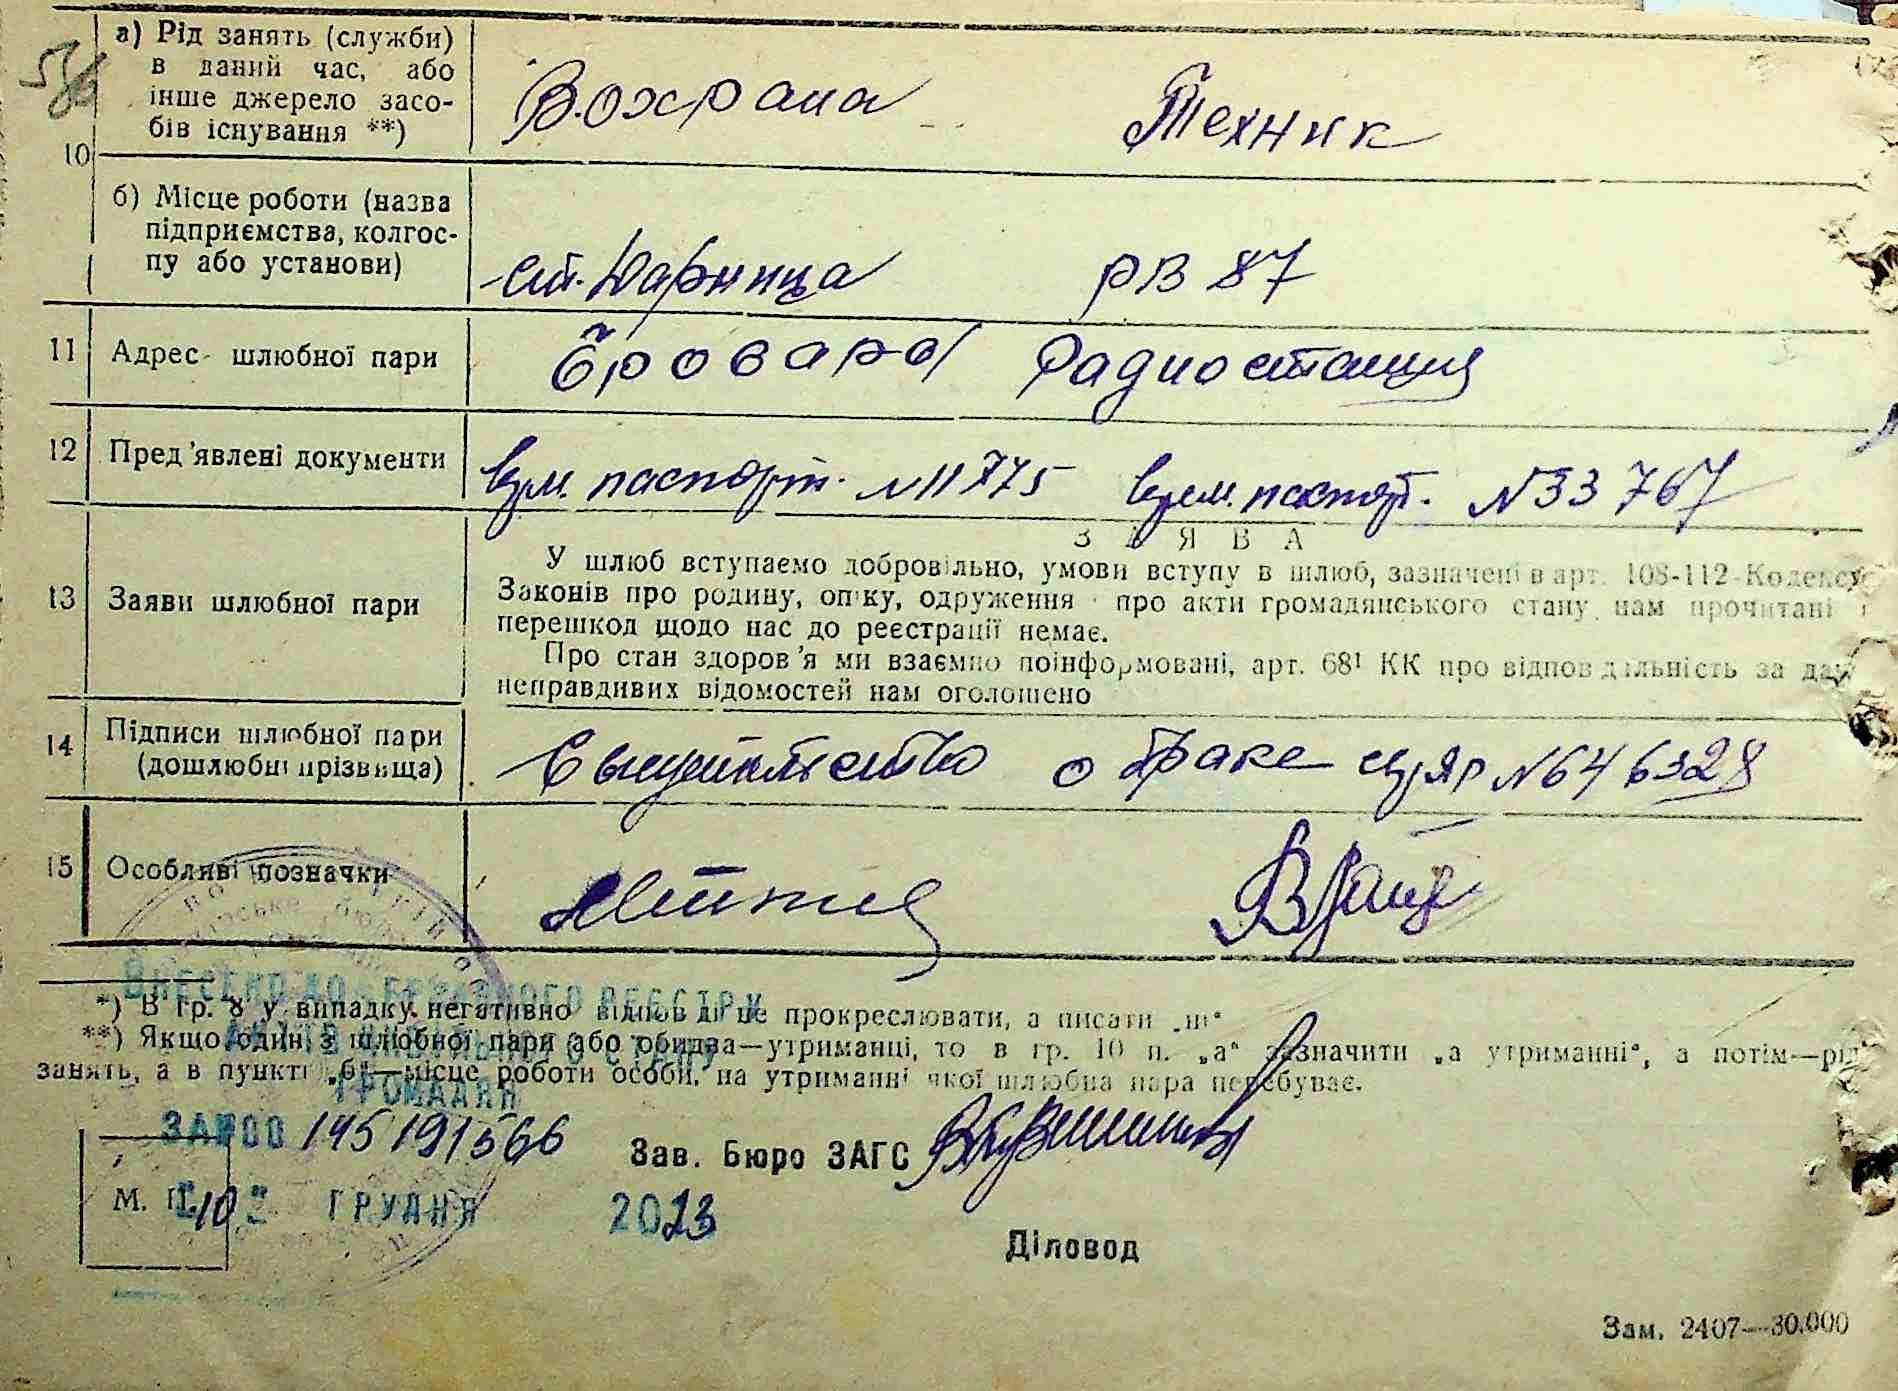 а) Рід занять (служби)
в даний час, або
інше джерело засо-
бів існування **)
В.охрана Техник
10
б) Місце роботи (назва
підприємства, колгос-
пу або установи)
ст. Дарница РВ 87
11 Адрес шлюбної пари Бровары Радиостанция
12 Пред'явлені документи врем. паспорт. №11775 врем. паспорт. №33767
З Я В А
13 Заяви шлюбної пари
У шлюб вступаємо добровільно, умови вступу в шлюб, зазначені в арт. 108-112 Кодексу
Законів про родину, опіку, одруження і про акти громадянського стану нам прочитані і
перешкод щодо нас до реєстрації немає.
Про стан здоров'я ми взаємно поінформовані, арт. 68¹ КК про відповідальність за дачу
неправдивих відомостей нам оголошено
14 Підписи шлюбної пари
(дошлюбні прізвища)
о браке №646328
15 Особливі позначки
ВНЕСЕНО ДО ДЕРЖАВНОГО РЕЄСТРУ
АКТІВ ЦИВІЛЬНОГО СТАНУ
ГРОМАДЯН
*) В гр. 8 у випадку негативної відповіді не прокреслювати, а писати „ні“
**) Якщо один з шлюбної пари або обидва—утриманці, то в гр. 10 п. „а“ зазначити „а утриманні“, а потім—рід
занять, а в пункті „б“—місце роботи особи, на утриманні якої шлюбна пара перебуває.
ЗА №00 145191566
Зав. Бюро ЗАГС
М. П.
10 ГРУДНЯ 2023
Діловод
Зам. 2407—30.000